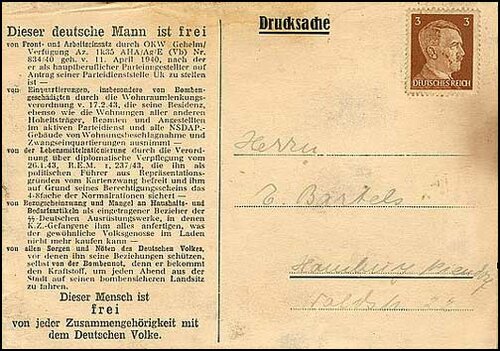 Dieser deutsche Mann ist frei
von Front- und Arbeitseinsatz durch OKW Geheim/
Verfügung Az. 1k35 AHA/Ag/E (Vb) Nr.
834/40 geh. v. 11. April 1940, nach der
er als hauptberuflicher Parteiangestellter auf
Antrag seiner Parteidienststelle Uk zu stellen
ist —
von Einquartierungen, insbesondere von Bomben-
geschädigten durch die Wohnraumlenkungs-
verordnung v. 17.2.43, die seine Residenz,
ebenso wie die Wohnungen aller anderen
Hoheitsträger, Beamten und Angestellten
im aktiven Parteidienst und alle NSDAP.-
Gebäude von Wohnungsbeschlagnahme und
Zwangseinquartierungen ausnimmt —
von der Lebensmittelrationierung durch die Verord-
nung über diplomatische Verpflegung vom
26.1.43, R.E.M. 1, 237/43, die ihn als
politischen Führer aus Repräsentations-
gründen vom Kartenzwang befreit und ihm
auf Grund seines Berechtigungsscheins das
4-8fache der Normalrationen sichert —
von Bezugscheinzwang und Mangel an Haushalts- und
Bedarfsartikeln als eingetragener Bezieher der
SS-Deutschen Ausrüstungswerke, in denen
K.Z.-Gefangene ihm alles anfertigen, was
der gewöhnliche Volksgenosse im Laden
nicht mehr kaufen kann —
von allen Sorgen und Nöten des Deutschen Volkes,
vor denen ihn seine Beziehungen schützen,
selbst von der Bombennot, denn er bekommt
den Kraftstoff, um jeden Abend aus der
Stadt auf seinen bombensicheren Landsitz
zu fahren.
Dieser Mensch ist
frei
von jeder Zusammengehörigkeit mit
dem Deutschen Volke.
Drucksache
3 3
DEUTSCHES REICH
Herrn
Bartels
Hamburg